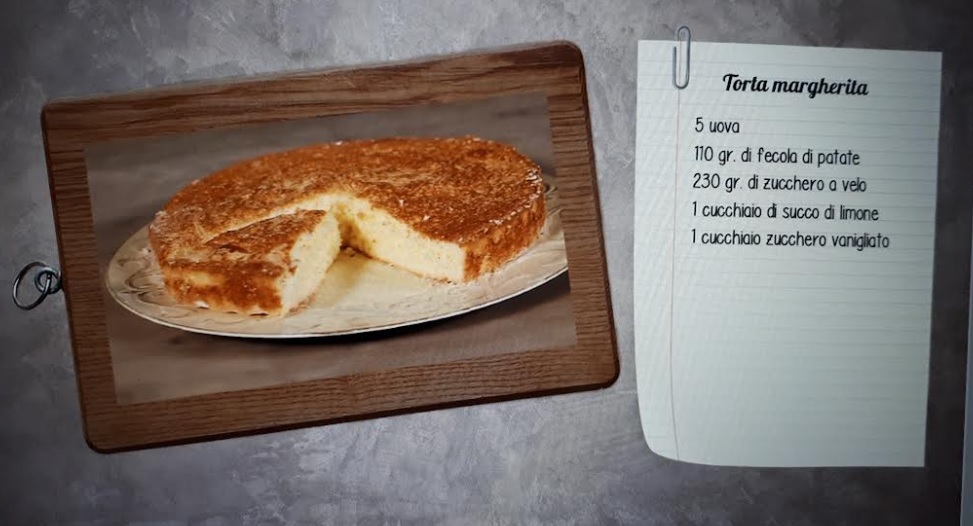 Torta margherita
5 uova
110 gr. di fecola di patate
230 gr. di zucchero a velo
1 cucchiaio di succo di limone
1 cucchiaio zucchero vanigliato